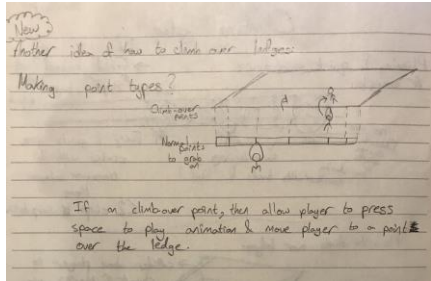 New
Another idea of how to climb over ledges:
Making point types?
Climb-over
points
Normal
points
to grab
on
If on climbover point, then allow player to press
space to play animation & move player to a point
over the ledge.